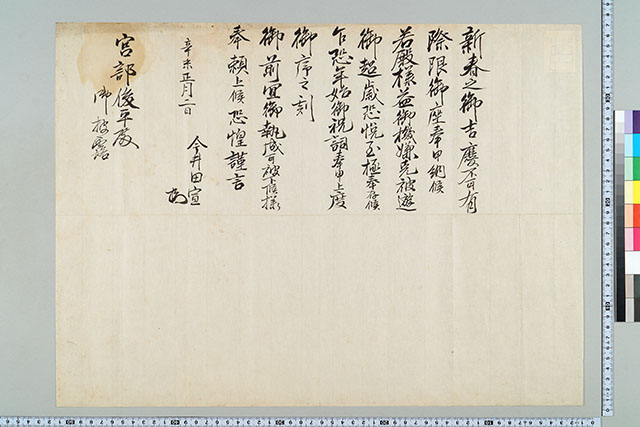 新春之御吉慶不可有
際限御座奉申納候
若殿様益御機嫌克被遊
御超歳恐悦至極奉存候
乍恐年始御祝詞奉申上度
御序之刻
御前宜御執成可被上候様
奉頼上候恐惶謹言
辛未正月二日
今井田宣
宮部俊平殿
御披露